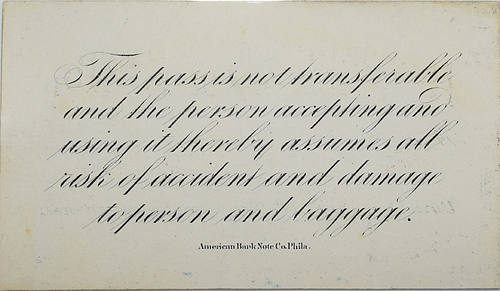 This pass is not transferable
and the person accepting and
using it thereby assumes all
risk of accident and damage
to person and baggage.
American Bank Note Co. Phila.